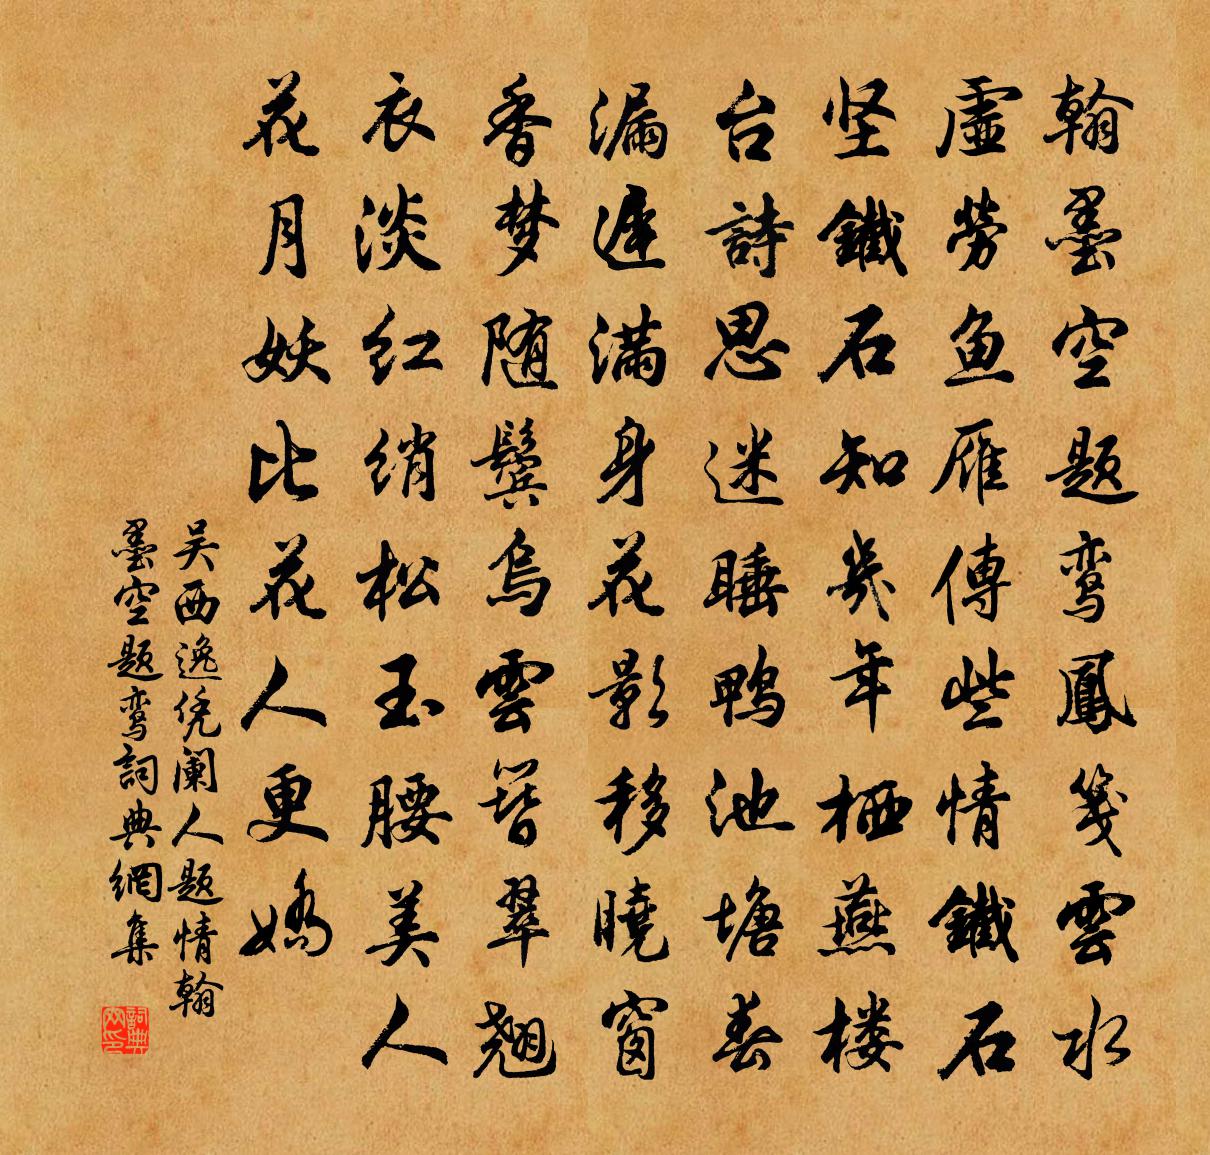 翰墨空题鸾鳳笺雲水
虛勞鱼雁傳些情鐵石
坚鐵石知幾年栖燕楼
台詩思迷睡鸭池塘春
漏遲满身花影移曉窗
香梦随鬓烏雲簪翠翘
衣淡红绡松玉腰美人
花月妖比花人更娇
吴西逸凭阑人题情翰
墨空题鸾詞典網集
詞典
网印